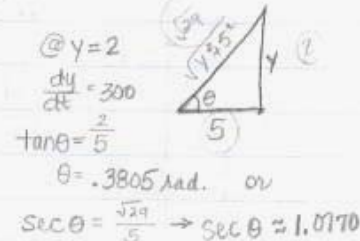 @ y=2
dy/dt = 300
tanθ = 2/5
θ = .3805 rad. or
secθ = √29/5 → sec θ ≈ 1.0770
√29
√y²+5²
y
2
θ
5